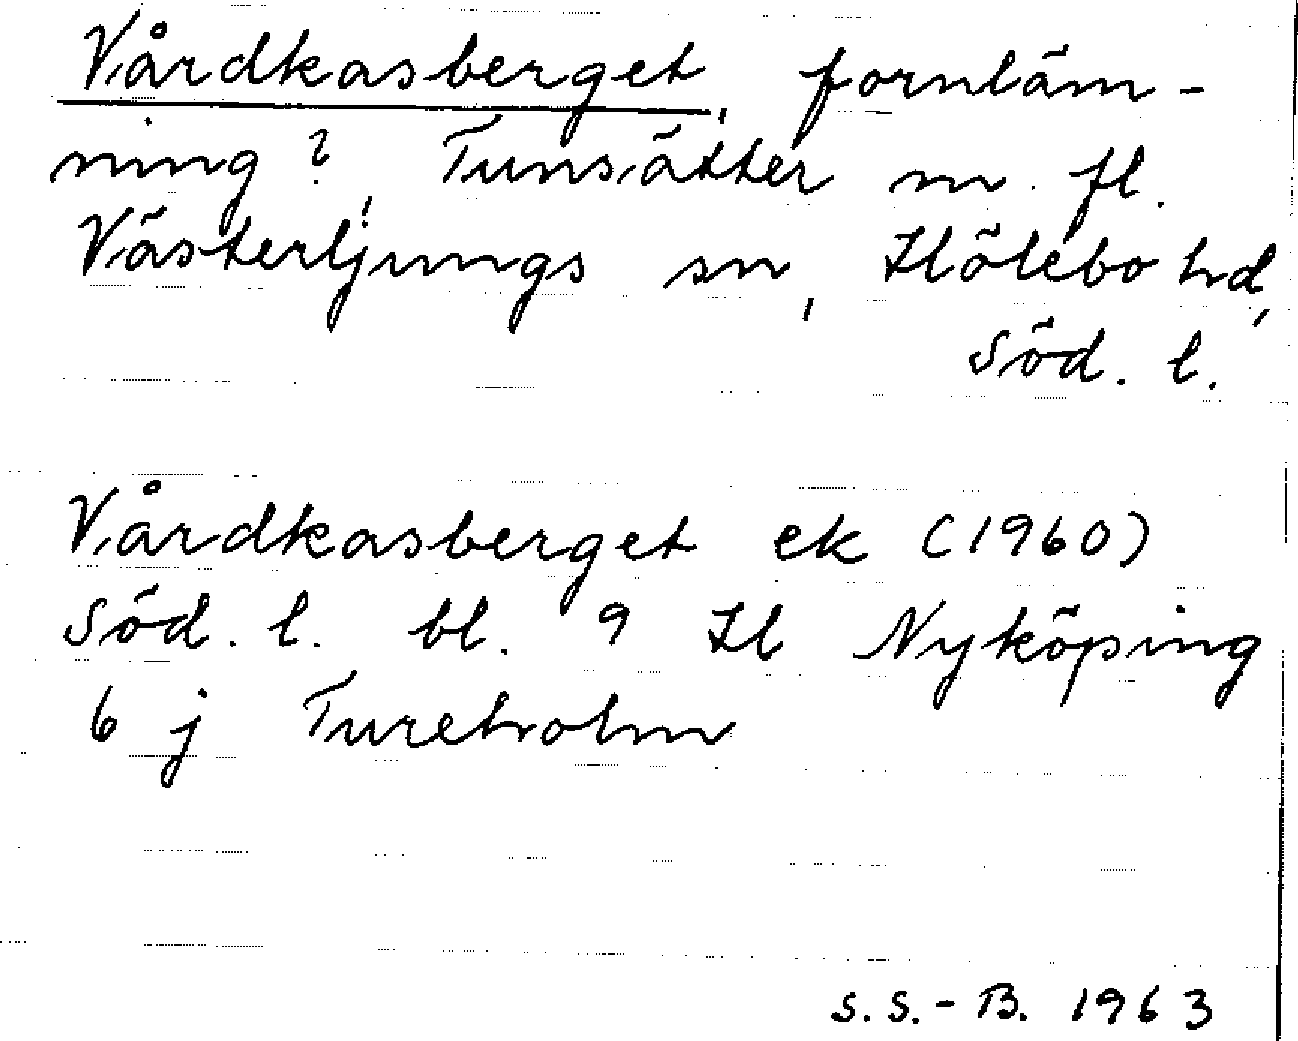 Vårdkasberget, fornläm-
ning?, Tunsätter m. fl.
Västerljungs sn, Hölebo hd,
Söd. l.
Vårdkasberget ek (1960)
Söd. l. bl. 9 H Nyköping
6 j Tureholm
S.S.-B. 1963